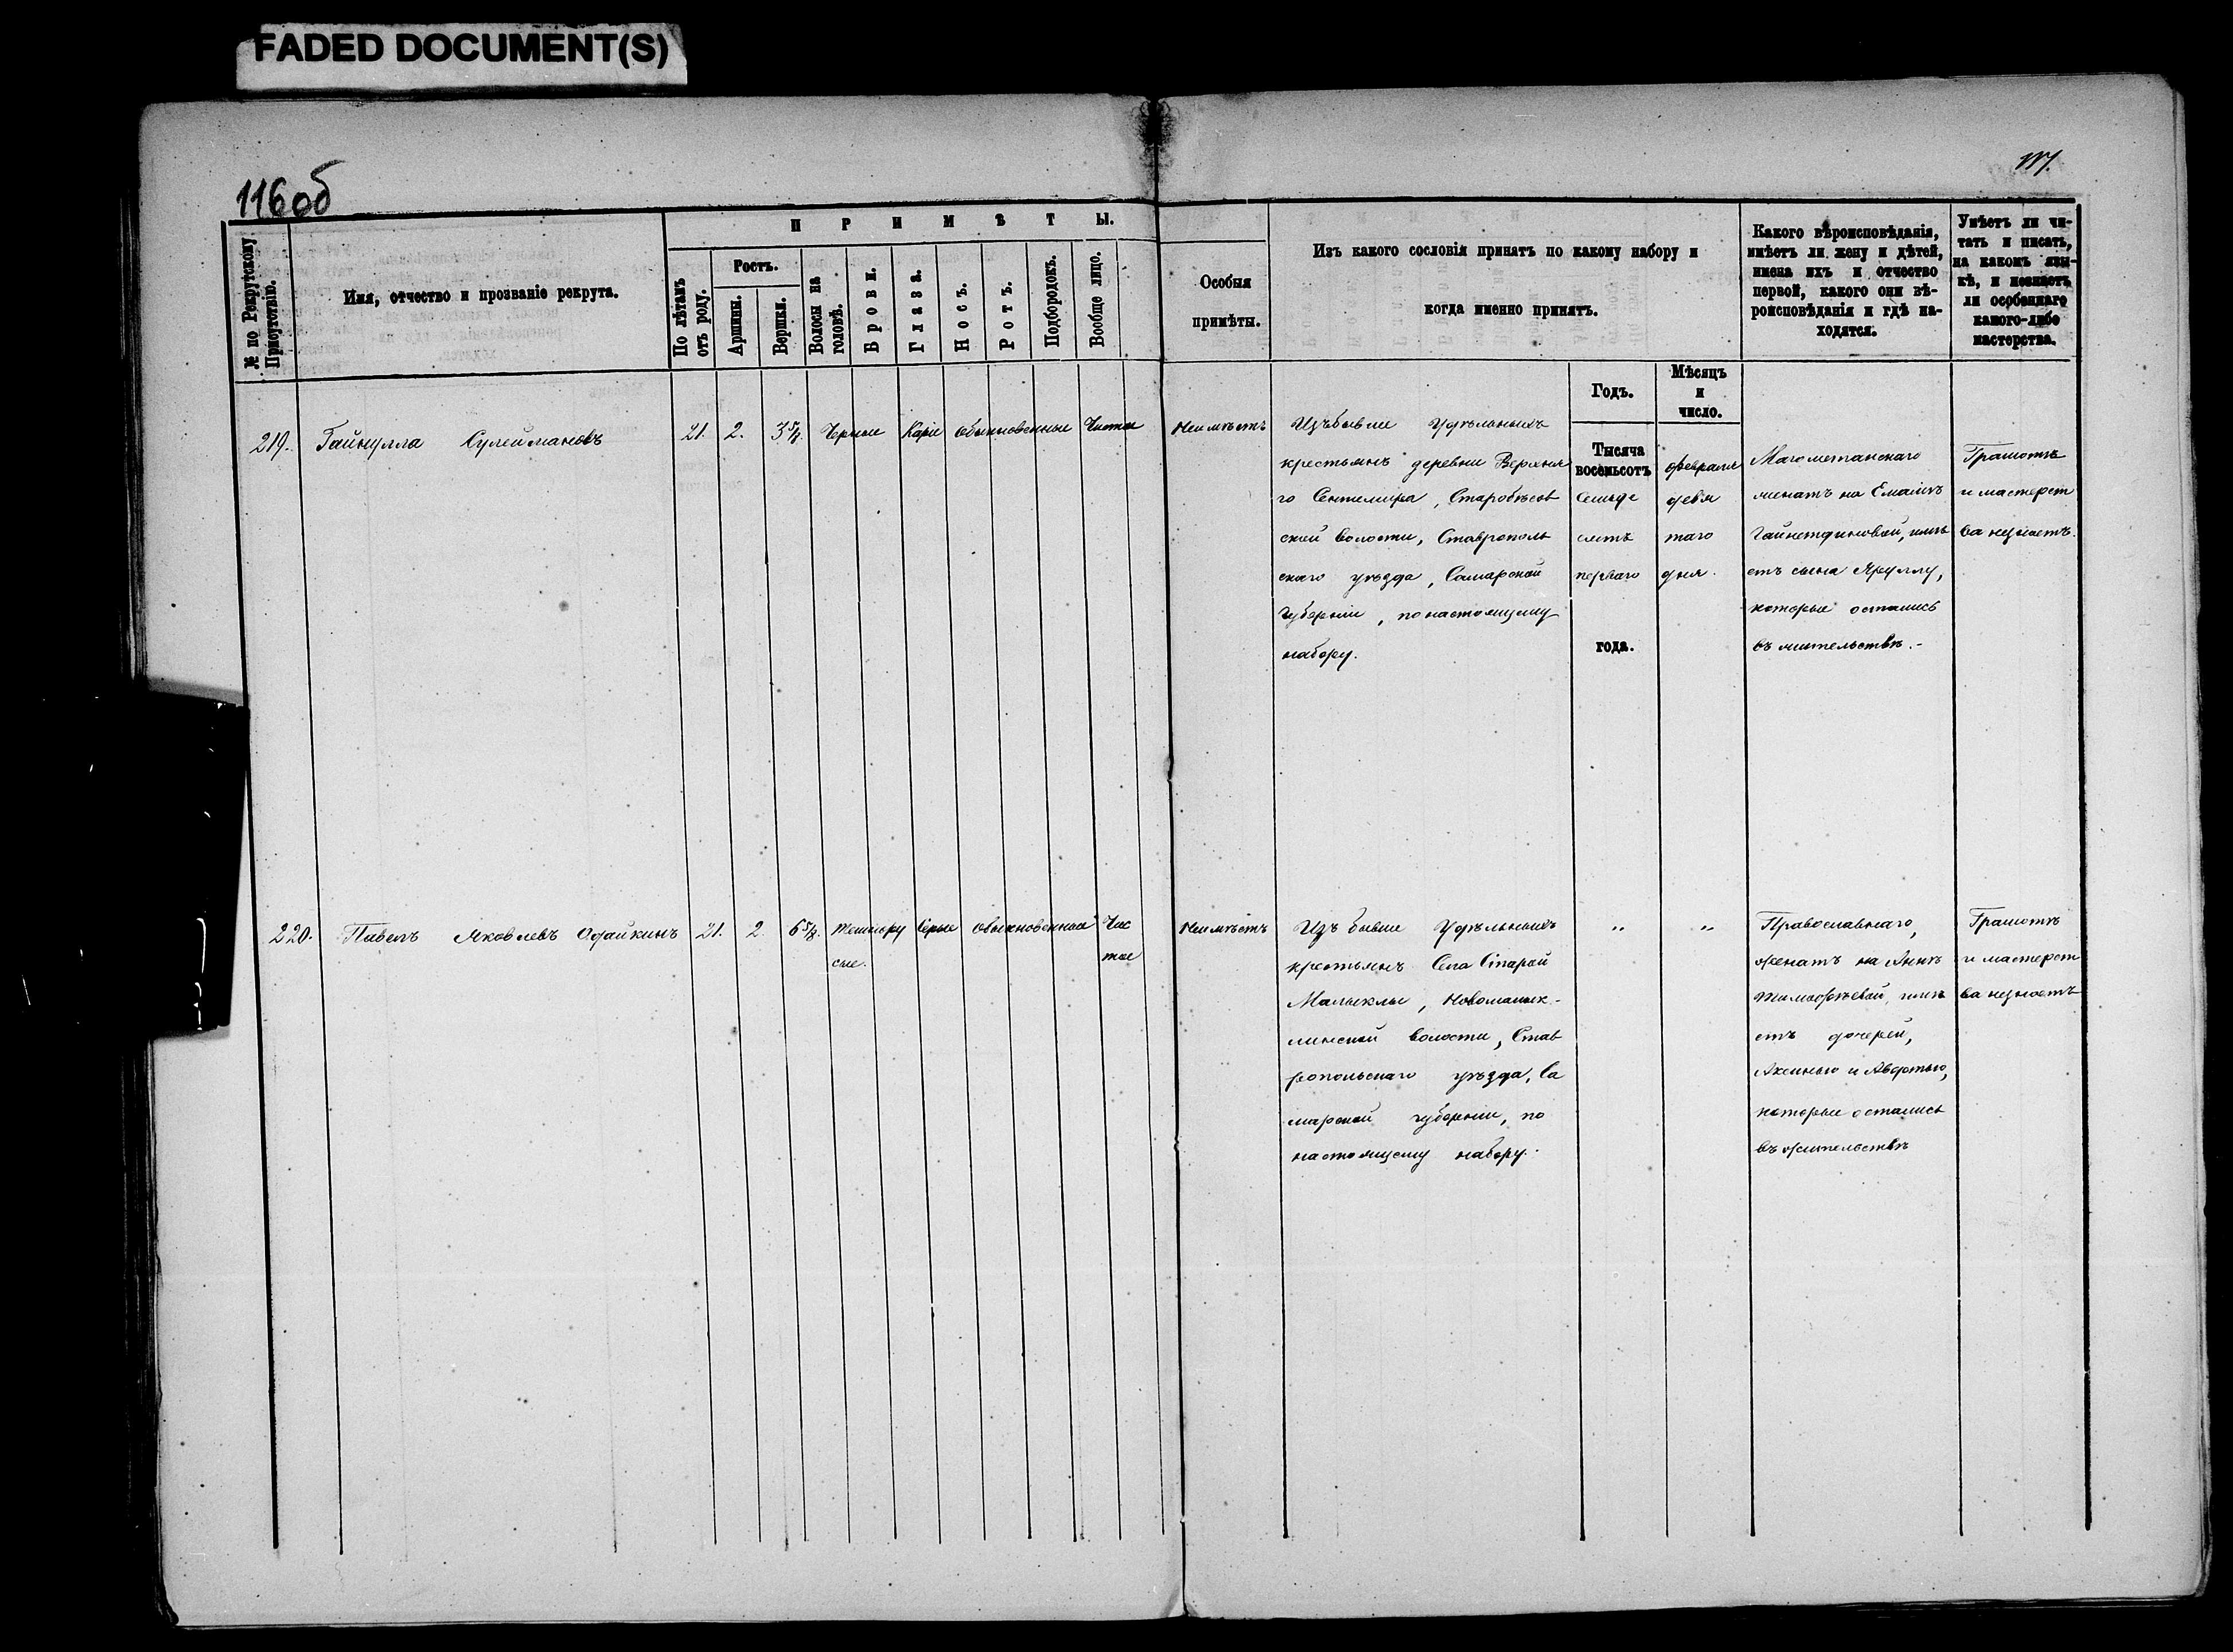 FADED DOCUMENT(S)
116об
117.
№ по Рекрутскому Присутствію.
Имя, отчество и прозваніе рекрута.
ПРИМѢТЫ.
По лѣтамъ отъ роду.
Ростъ.
Аршины.
Вершки.
Волосы на головѣ.
Брови.
Глаза.
Носъ.
Ротъ.
Подбородокъ.
Вообще лицо.
Особыя
примѣты.
Изъ какого сословія принятъ по какому набору и
когда именно принятъ.
Какого вѣроисповѣданія,
имѣетъ ли жену и дѣтей,
имена ихъ и отчество
первой, какого они вѣ-
роисповѣданія и гдѣ на-
ходятся.
Умѣетъ ли чи-
тать и писать,
на какомъ язы-
кѣ, и незнаетъ
ли особеннаго
какого-либо
мастерства.
Годъ.
Мѣсяцъ
и
число.
219. Гайнулла Сулеймановъ 21. 2. 3 5/8. Черные Каріе обыкновенные Чистое
Неимѣетъ
Изъ бывше Удѣльныхъ
крестьянъ деревни Верхня
го Сентемира, Старобѣсов
ской волости, Ставрополь
скаго уѣзда, Самарской
Губерніи, по настоящему
набору.
Тысяча
восемьсотъ
семьде
сятъ
перваго
года.
февраля
девя
таго
дня.
Магометанскаго
женатъ на Емалик
Гайнетдиновой, имѣ
етъ сына Яруллу,
которые остались
въ жительствѣ.-
Грамотѣ
и мастерст
ва незнаетъ.
220. Павелъ Яковлевъ Адайкинъ 21. 2. 6 5/8. темнору Серые обыкновенный Чис
сые. тое
Неимѣетъ
Изъ бывше Удѣльныхъ
крестьянъ Села Старой
Малыклы, Новомалык-
линской волости, Став
ропольскаго уѣзда, Са
марской губерніи, по
настоящему набору.
" "
Православнаго,
женатъ на Аннѣ
Тимофѣевой, имѣ
етъ дочерей,
Аксинью и Авдотью,
которые остались
въ жительствѣ
Грамотѣ
и мастерст
ва незнаетъ